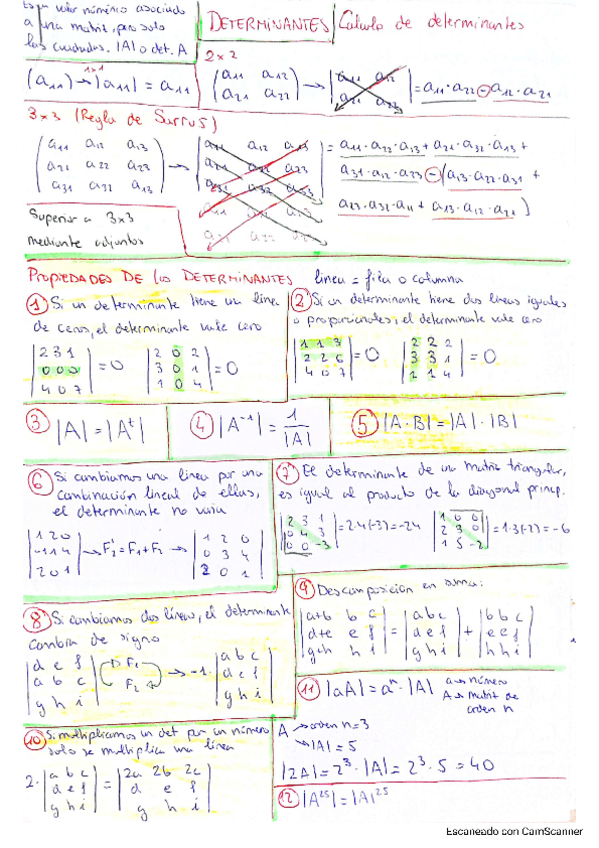 Es un valor numérico asociado
a una matriz, pero solo
las cuadradas. |A| o det. A
DETERMINANTES
Cálculo de determinantes
1x1
(a11) → |a11| = a11
2x2
(a11 a12
a21 a22) → |a11 a12
a21 a22| = a11·a22 - a12·a21
3x3 (Regla de Sarrus)
(a11 a12 a13
a21 a22 a23
a31 a32 a13) → |a11 a12 a13
a21 a22 a23
a31 a32 a33|
a11 a12 a13
a21 a22 a23
= a11·a22·a33 + a21·a32·a13 +
a31·a12·a23 - (a13·a22·a31 +
a23·a32·a11 + a33·a12·a21)
Superior a 3x3
mediante adjuntos
PROPIEDADES DE LOS DETERMINANTES
línea = fila o columna
① Si un determinante tiene una línea
de ceros, el determinante vale cero
|2 3 1
0 0 0
4 0 7| = 0
|2 0 2
3 0 1
1 0 4| = 0
② Si un determinante tiene dos líneas iguales
o proporcionales, el determinante vale cero
|1 1 3
2 2 6
4 0 7| = 0
|2 2 2
3 3 1
1 1 4| = 0
③ |A| = |Aᵗ|
④ |A⁻¹| = 1/|A|
⑤ |A·B| = |A|·|B|
⑥ Si cambiamos una línea por una
combinación lineal de ellas,
el determinante no varía
|1 2 0
-1 1 4
2 0 1| → F2' = F1 + F2 → |1 2 0
0 3 4
2 0 1|
⑦ El determinante de una matriz triangular,
es igual al producto de la diagonal princp.
|2 3 1
0 4 3
0 0 -3| = 2·4·(-3) = -24
|1 0 0
2 3 0
1 5 -2| = 1·3·(-2) = -6
⑧ Si cambiamos dos líneas, el determinante
cambia de signo
|d e f
a b c
g h i| F1 F2 → -1·|a b c
d e f
g h i|
⑨ Descomposición en suma:
|a+b b c
d+e e f
g+h h i| = |a b c
d e f
g h i| + |b b c
e e f
h h i|
⑩ Si multiplicamos un det por un número
solo se multiplica una línea
2·|a b c
d e f
g h i| = |2a 2b 2c
d e f
g h i|
⑪ |aA| = aⁿ·|A|
a → número
A → matriz de
orden n
A → orden n=3
→ |A| = 5
|2A| = 2³·|A| = 2³·5 = 40
⑫ |A²⁵| = |A|²⁵
Escaneado con CamScanner